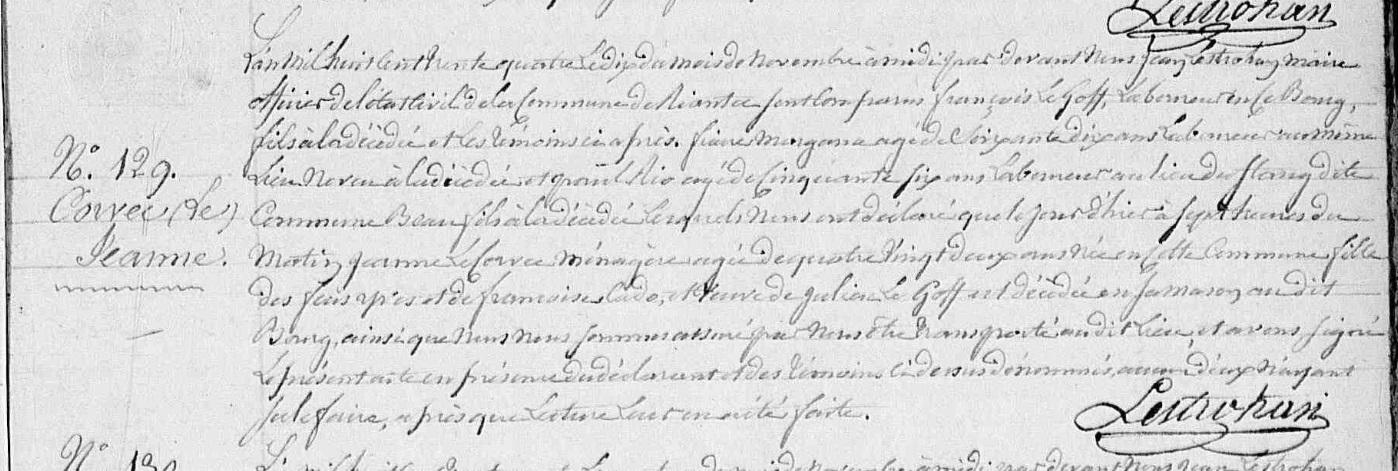 Lestrohan
L'an Mil huit Cent trente quatre Le dix du mois de Novembre à midi par devant Nous Jean Lestrohan maire
Officier de l'état Civil de la Commune de Riantec sont Comparus françois Le Goff, Laboureur en ce Bourg,
fils à la décédée et Les témoins ci après. Morgane agé de Soixante dix ans Laboureur au même
N.° 129.
Lieu Neveu à la décédée et Rio agé de Cinquante six ans Laboureur au lieu du dite
Corvec (Le)
Commune Beau fils à la décédée Lesquels Nous ont déclaré que le Jour d'hier à sept heures du
Jeanne.
Matin Jeanne Le Corvec Ménagère agée de quatre Vingt deux ans Née en cette Commune fille
des feus yves et de francoise Cado, et Veuve de Julien Le Goff est décédée en sa maison au dit
Bourg, ainsi que Nous Nous sommes assuré par Nous être transporté au dit Lieu, et avons signé
Le présent acte en présence du déclarant et des témoins Ci dessus dénommés, aucun d'eux N'ayant
su le faire, après que Lecture Leur en a été faite.
Lestrohan
N.° 130
L'an mil huit de novembre à midi par devant Nous Jean Lestrohan